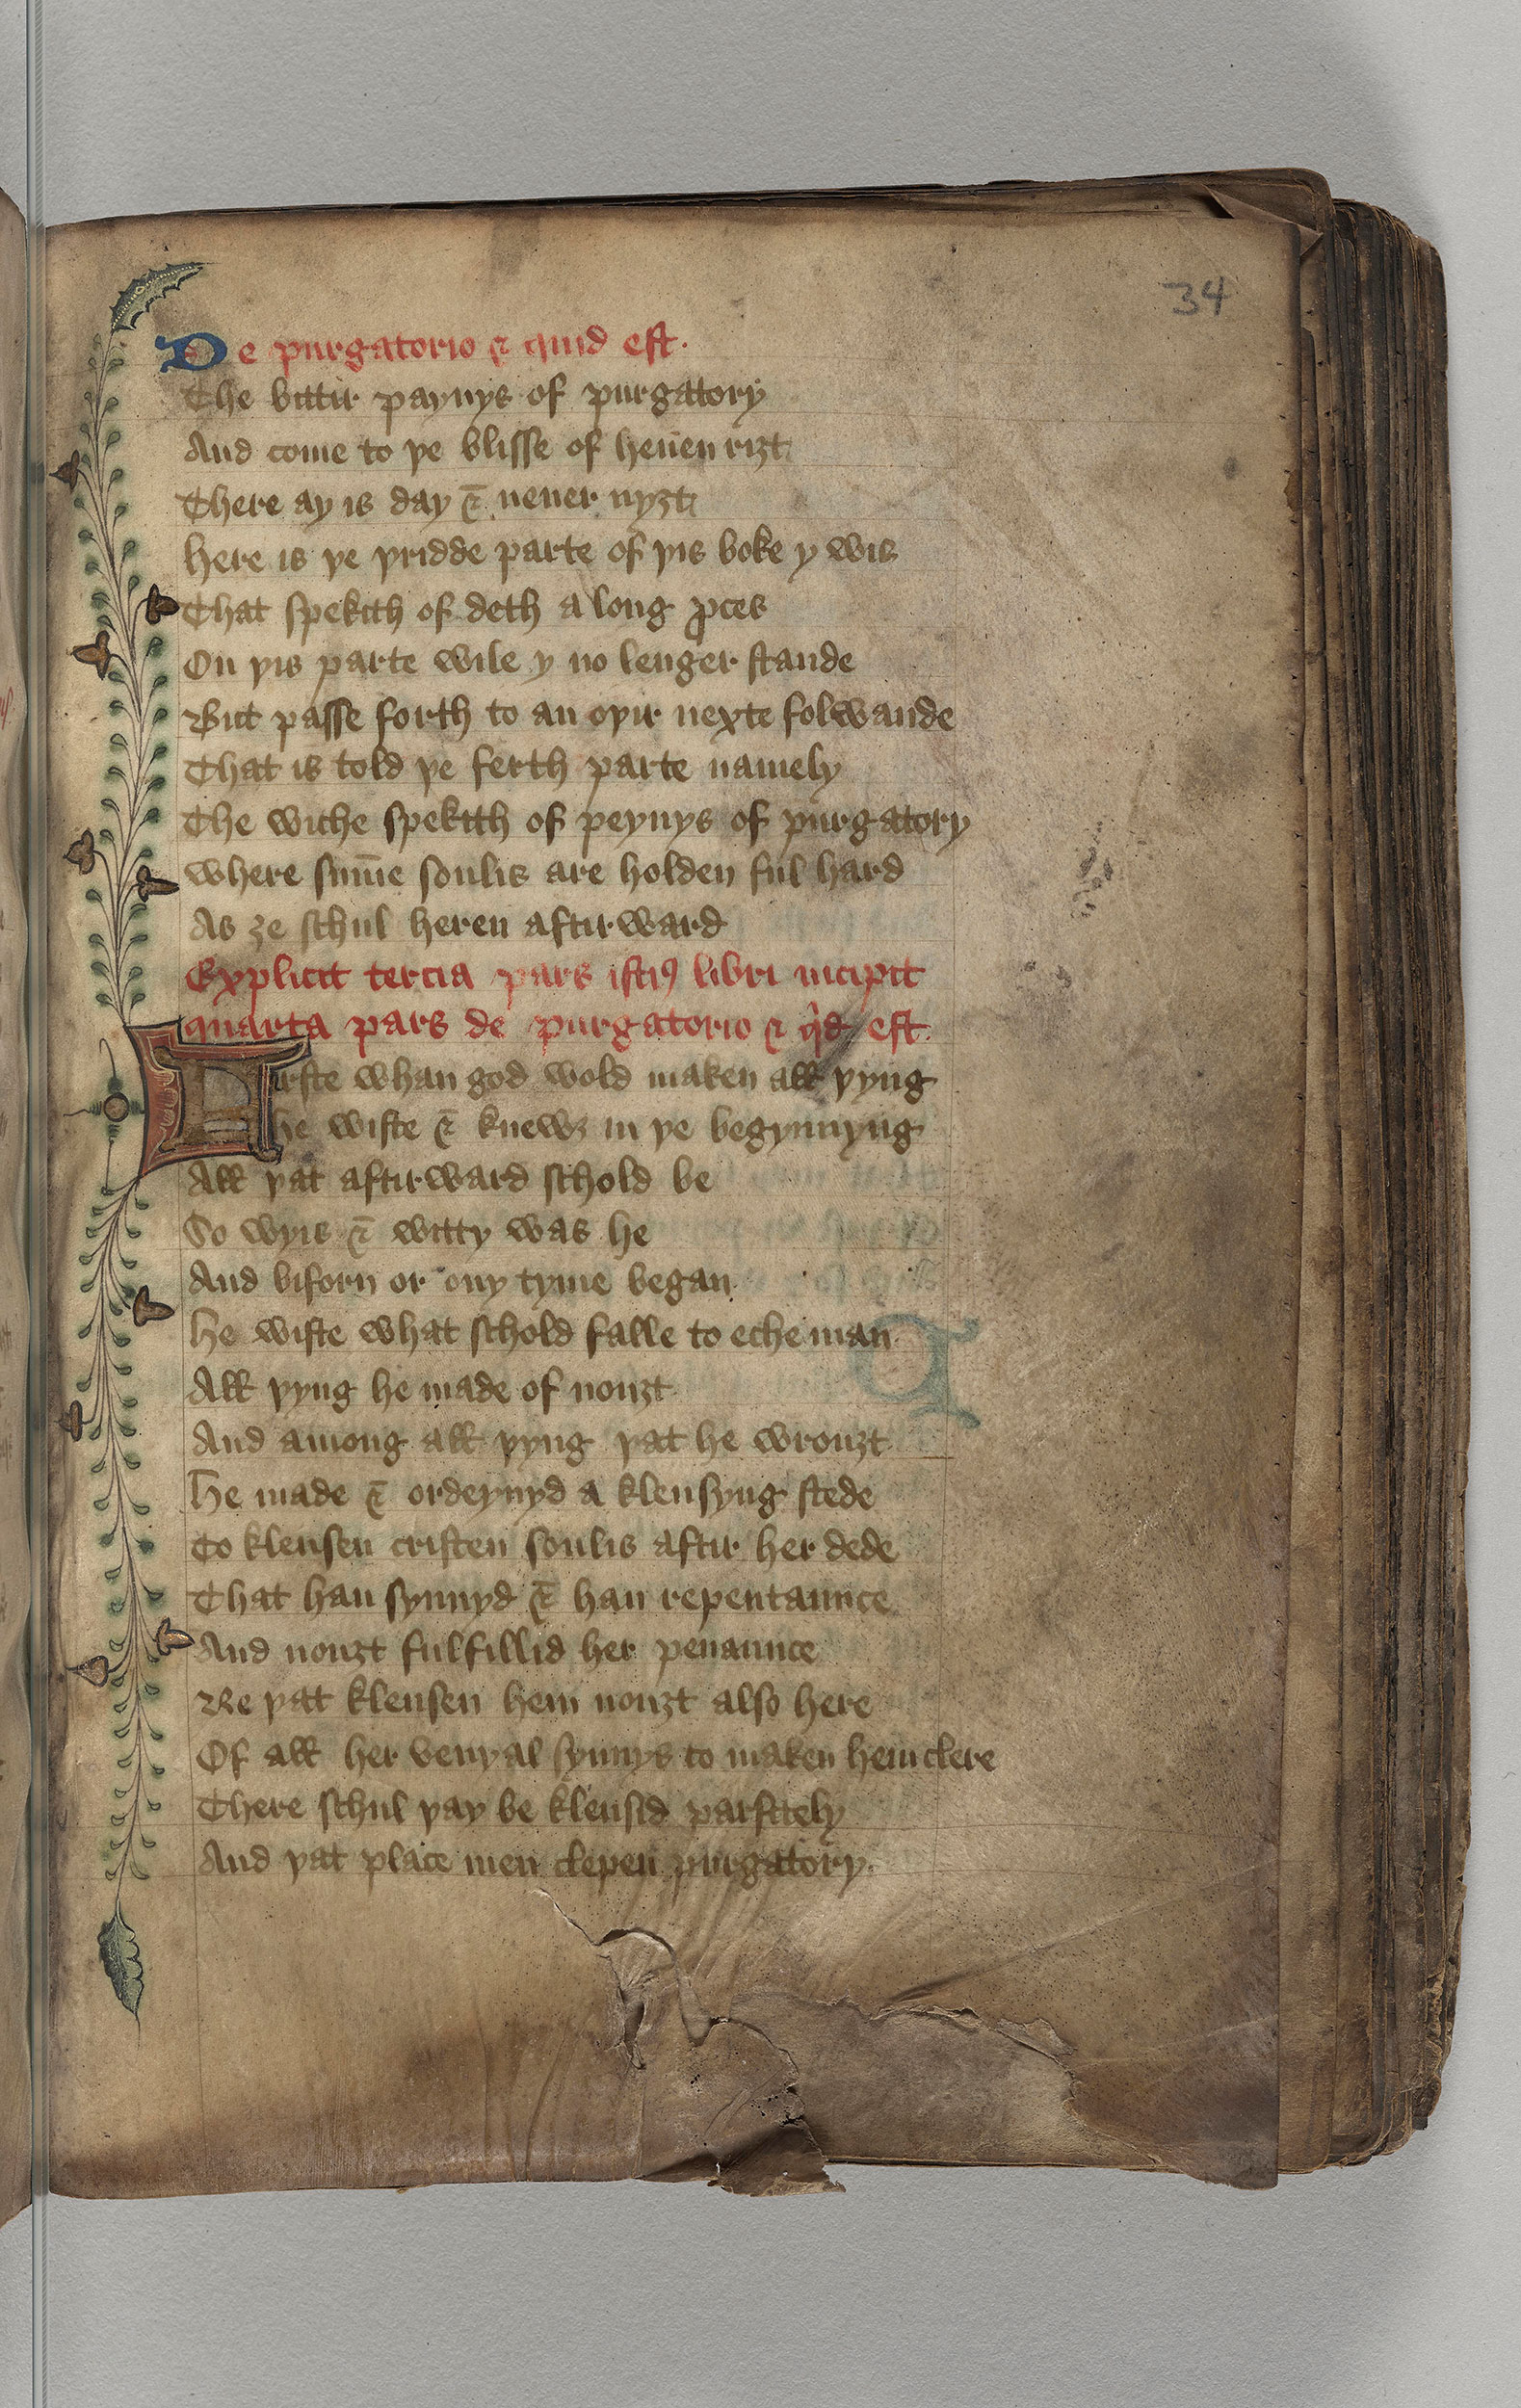 34
De purgatorio ⁊ quid est.
The bittir paynys of purgatory
And come to þe blisse of heuen riȝt
There ay is day ⁊ neuer nyȝt
Here is þe þridde parte of þis boke y wis
That spekith of deth a long ꝓces
On þis parte wile y no lenger stande
But passe forth to an oþir nexte folwande
That is told þe ferth parte namely
The wiche spekith of peynys of purgatory
Where sum̅e soulis are holden ful hard
As ȝe schul heren aftirward
Explicit tercia pars istiꝰ libri incipit
quarta pars de purgatorio ⁊ qͥd est.
Firste whan god wold maken all þyng
he wiste ⁊ knewȝ in þe begynnyng
All þat aftirward schold be
So wyis ⁊ witty was he
And biforn or ony tyme began
He wiste what schold falle to eche man
All þyng he made of nouȝt
And among all þyng þat he wrouȝt
He made ⁊ ordeynyd a klensyng stede
To klensen cristen soulis aftir her dede
That han synnyd ⁊ han repentaunce
And nouȝt fulfillid her penaunce
Re þat klensen hem nouȝt also here
Of all her venyal synnys to maken hem clere
There schul þay be klensid parfitely
And þat place men clepen purgatory.